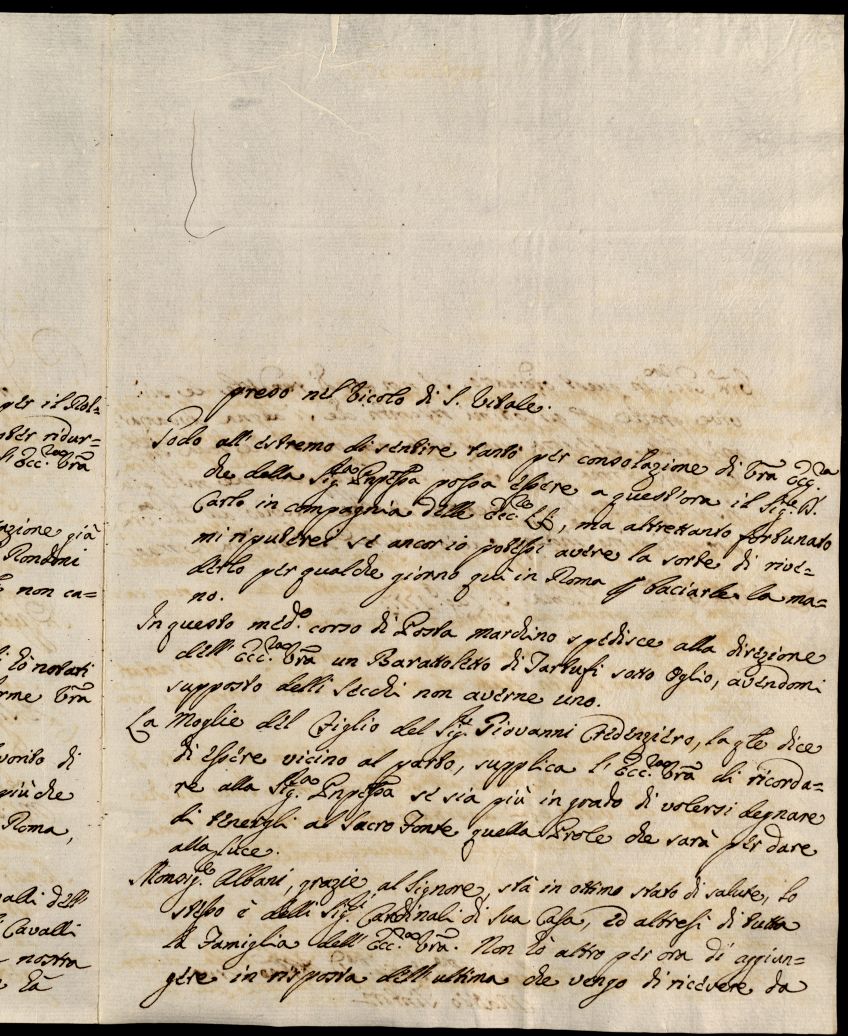 per il Pol=
poter ridur=
l'Ecc.za Vrã
azione già
Rondini
non ca=
hò notati
orme Vrã
vorito di
più che
Roma,
valli dell'
Cavalli
nostra
hà
preso nel Vicolo di S. Vitale.
Godo all'estremo di sentire tanto per consolazione di Vrã Ecc.za
che della Sig.ra Pnpessa possa essere a quest'ora il Sig.r D.
Carlo in compagnia delle Ecc.ze LL., ma altrettanto fortunato
mi riputerei se ancor io potessi avere la sorte di rive=
derlo per qualche giorno quà in Roma p baciarle la ma=
no.
In questo med.o corso di Posta mardino spedisce alla direzione
dell'Ecc.za Vrã un Barattoletto di Tartufi sotto Oglio, avendomi
supposto delli secchi non averne uno.
La Moglie del Figlio del Sig.r Giovanni Credenziero, la qle dice
di essere vicino al parto, supplica l'Ecc.za Vrã di ricorda=
re alla Sig.ra Pnpessa se sia più in grado di volersi degnare
di tenergli al Sacro Fonte quella Prole che sarà per dare
alla luce.
Monsig.r Albani, grazie al Signore, stà in ottimo stato di salute, lo
stesso è delli Sig.ri Cardinali di sua Casa, ed altresì di tutta
la Famiglia dell'Ecc.za Vrã. Non hò altro per ora di aggiun=
gere in risposta dell'ultima che vengo di ricevere da